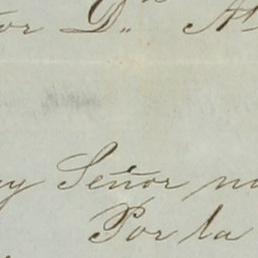 or D.ⁿ
ay Señor m
Por la